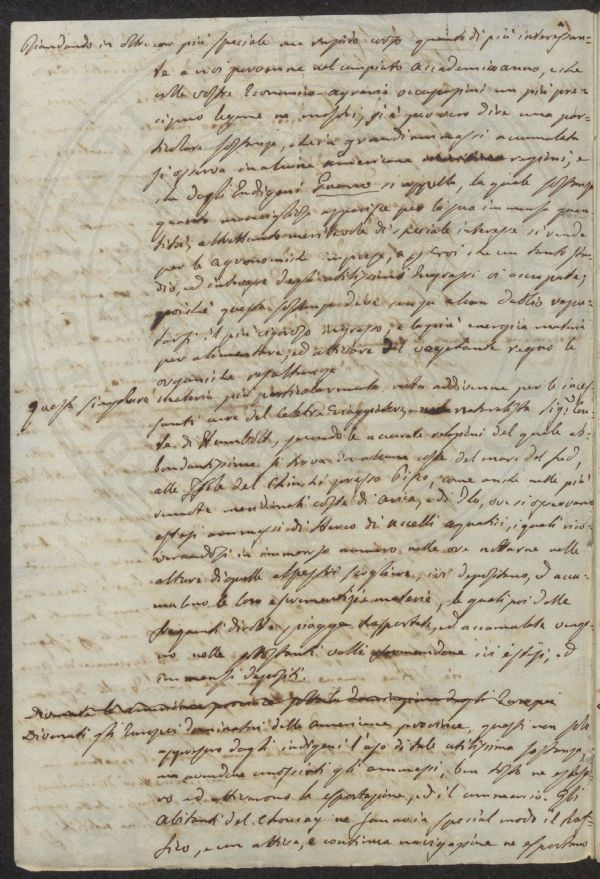 in oltre con più speciale ma rapido corso quanto di più interessan-
te a noi pervenne nel compiuto Accademico anno, e che
alle vostre Economico-agrarie occupazioni un più pre-
ciso legame ne mostri, si è per vero dire una par-
ticolare sostanza, che in grandi ammassi accumulata
si osserva in alcune americane regioni, e
da dagli Indigeni Guano si appella, la quale sostanza
quanto maravigliosa apparisce per la sua immensa quan-
tità, altrettanto meritevole di speciale interesse si rende
per le agronomiche imprese, e per voi che un tanto stu-
dio, ed interesse degli utilissimi Ingrassi vi occupate;
poichè questa sostanza deve senza alcun dubbio repu-
tarsi il più vigoroso ingrasso, e la più energica materia
per alimentare, ed attivare del vegetante regno le
organiche
Questa singolare materia più particolarmente nota addivenne per le inces-
santi cure del celebre Viaggiatore, naturalista Sig.r
de Humboldt, secondo le accurate relazioni del quale ab-
bondantissima si trova in alcune coste del mare del Sud,
alle Isole del Chinche presso Pisco, come anche nelle più
remote meridionali coste di Arica, e di Ilo, ove si osservano
estesi ammassi di sterco di uccelli aquatici, i quali rico-
verandosi in immenso numero nelle ore notturne nelle
alture di quelle alpestri scogliere, ivi depositano, ed accu-
mulano le loro escrementizie materie, le quali poi dalle
piogge trasportate, ed accumulate vengo-
no nelle sottostanti valli formandone ivi estesi, ed
immensi depositi.
Divenute le americane provincie sotto la dominazione degli Europei
Divenuti gli Europei dominatori delle Americane provincie, questi non solo
appresero dagli indigeni l'uso di tale utilissima sostanza,
ma avendone conosciuti gli ammassi, ben tosto ne
ro ed attivarono la esportazione, ed il commercio. Gli
Abitanti del Chancay ne fanno in special modo il traf-
fico, e con attiva, e continua navigazione ne esportano